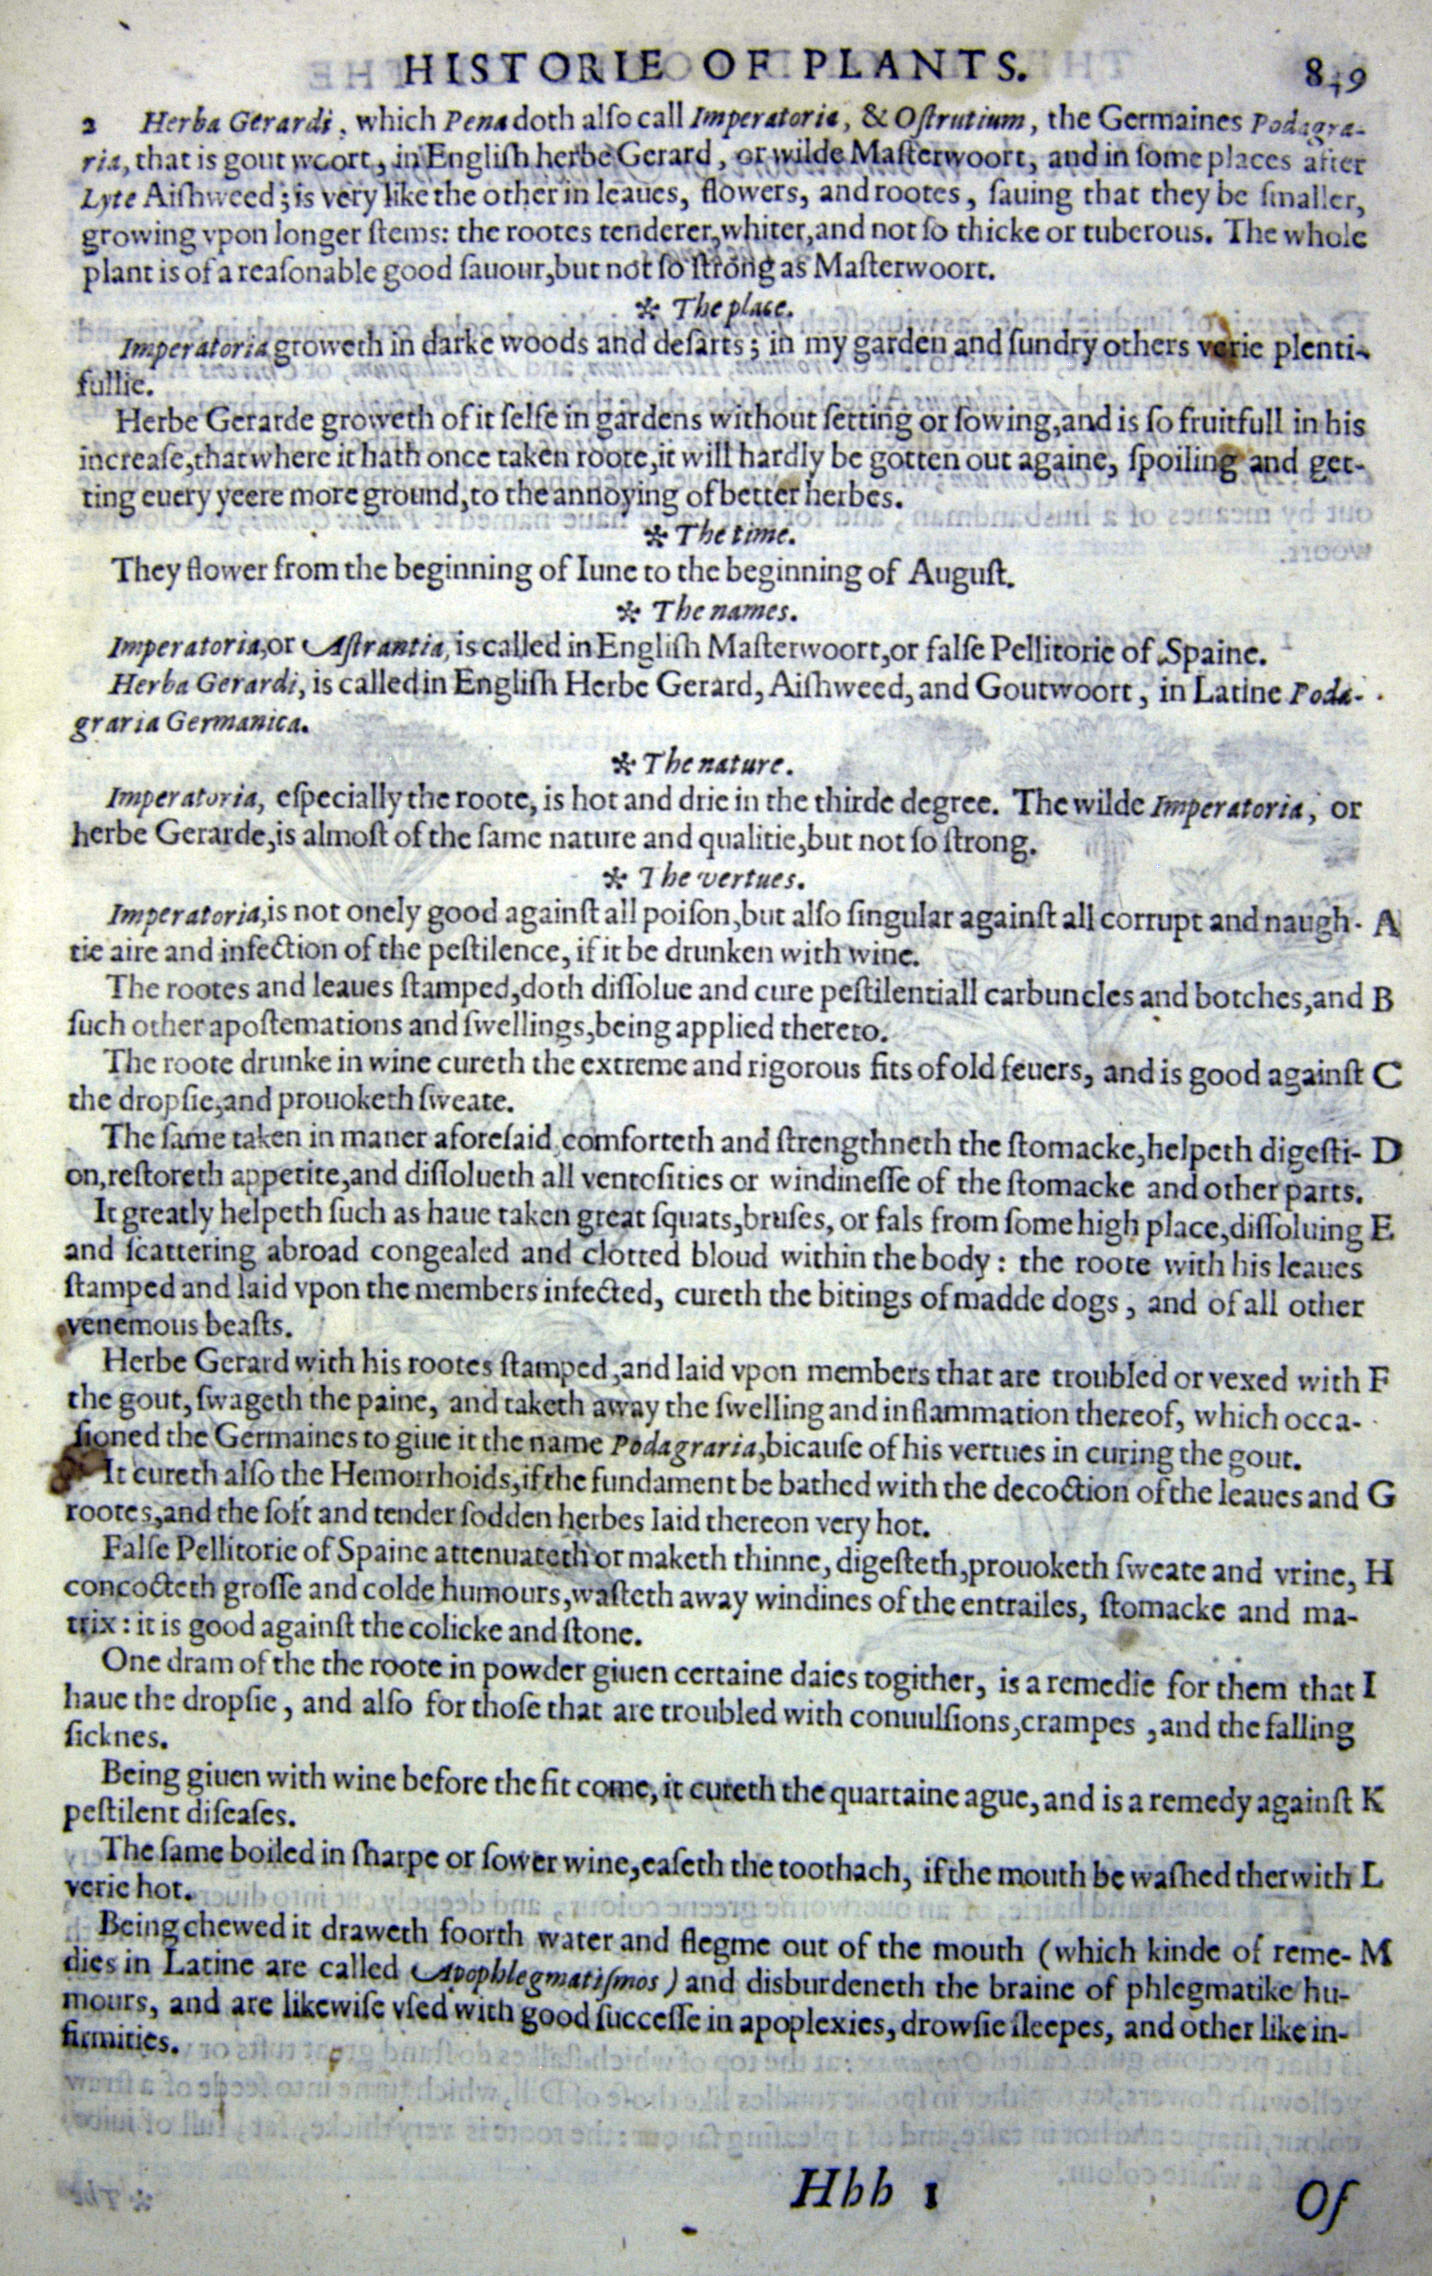 HISTORIE OF PLANTS. 849
2 Herba Gerardi, which Pena doth alſo call Imperatoria, & Oſtrutium, the Germaines Podagra-
ria, that is gout woort, in Engliſh herbe Gerard, or wilde Maſterwoort, and in ſome places after
Lyte Aiſhweed; is very like the other in leaues, flowers, and rootes, ſauing that they be ſmaller,
growing vpon longer ſtems: the rootes tenderer, whiter, and not ſo thicke or tuberous. The whole
plant is of a reaſonable good ſauour, but not ſo ſtrong as Maſterwoort.
✻ The place.
Imperatoria groweth in darke woods and deſarts; in my garden and ſundry others verie plenti-
fullie.
Herbe Gerarde groweth of it ſelfe in gardens without ſetting or ſowing, and is ſo fruitfull in his
increaſe, that where it hath once taken roote, it will hardly be gotten out againe, ſpoiling and get-
ting euery yeere more ground, to the annoying of better herbes.
✻ The time.
They flower from the beginning of Iune to the beginning of Auguſt.
✻ The names.
Imperatoria, or Aſtrantia, is called in Engliſh Maſterwoort, or falſe Pellitorie of Spaine.
Herba Gerardi, is called in Engliſh Herbe Gerard, Aiſhweed, and Goutwoort, in Latine Poda-
graria Germanica.
✻ The nature.
Imperatoria, eſpecially the roote, is hot and drie in the thirde degree. The wilde Imperatoria, or
herbe Gerarde, is almoſt of the ſame nature and qualitie, but not ſo ſtrong.
✻ The vertues.
Imperatoria, is not onely good againſt all poiſon, but alſo ſingular againſt all corrupt and naugh- A
tie aire and infection of the peſtilence, if it be drunken with wine.
The rootes and leaues ſtamped, doth diſſolue and cure peſtilentiall carbuncles and botches, and B
ſuch other apoſtemations and ſwellings, being applied thereto.
The roote drunke in wine cureth the extreme and rigorous fits of old feuers, and is good againſt C
the dropſie, and prouoketh ſweate.
The ſame taken in maner aforeſaid comforteth and ſtrengthneth the ſtomacke, helpeth digeſti- D
on, reſtoreth appetite, and diſſolueth all ventoſities or windineſſe of the ſtomacke and other parts.
It greatly helpeth ſuch as haue taken great ſquats, bruſes, or fals from ſome high place, diſſoluing E
and ſcattering abroad congealed and clotted bloud within the body: the roote with his leaues
ſtamped and laid vpon the members infected, cureth the bitings of madde dogs, and of all other
venemous beaſts.
Herbe Gerard with his rootes ſtamped, and laid vpon members that are troubled or vexed with F
the gout, ſwageth the paine, and taketh away the ſwelling and inflammation thereof, which occa-
ſioned the Germaines to giue it the name Podagraria, bicauſe of his vertues in curing the gout.
It cureth alſo the Hemorrhoids, if the fundament be bathed with the decoction of the leaues and G
rootes, and the ſoft and tender ſodden herbes laid thereon very hot.
Falſe Pellitorie of Spaine attenuateth or maketh thinne, digeſteth, prouoketh ſweate and vrine, H
concocteth groſſe and colde humours, waſteth away windines of the entrailes, ſtomacke and ma-
trix: it is good againſt the colicke and ſtone.
One dram of the the roote in powder giuen certaine daies togither, is a remedie for them that I
haue the dropſie, and alſo for thoſe that are troubled with conuulſions, crampes, and the falling
ſicknes.
Being giuen with wine before the fit come, it cureth the quartaine ague, and is a remedy againſt K
peſtilent diſeaſes.
The ſame boiled in ſharpe or ſower wine, eaſeth the toothach, if the mouth be waſhed therwith L
verie hot.
Being chewed it draweth foorth water and flegme out of the mouth (which kinde of reme- M
dies in Latine are called Apophlegmatiſmos) and disburdeneth the braine of phlegmatike hu-
mours, and are likewiſe vſed with good ſucceſſe in apoplexies, drowſie ſleepes, and other like in-
firmities.
Hhh 1 Of